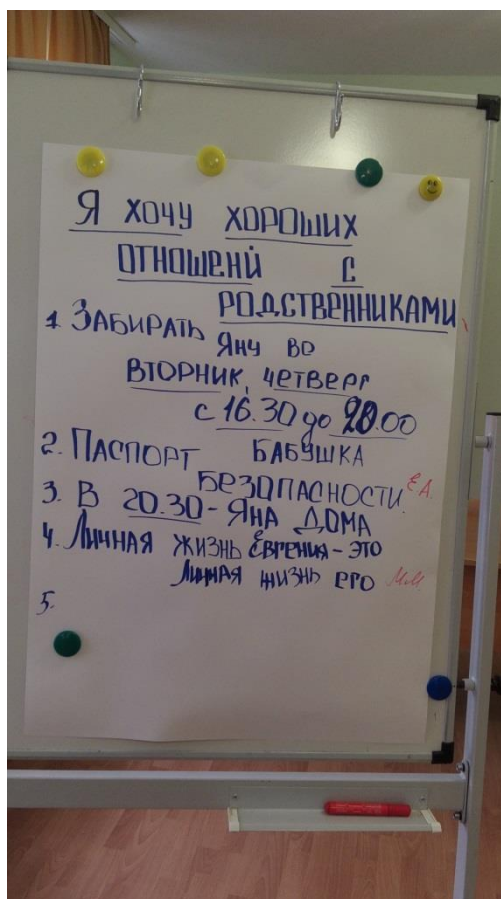 Я ХОЧУ ХОРОШИХ
ОТНОШЕНИЙ С
РОДСТВЕННИКАМИ
1 ЗАБИРАТЬ
ЯНУ ВО
ВТОРНИК, ЧЕТВЕРГ
С 16.30 до 20.00
2. ПАСПОРТ БАБУШКА
БЕЗОПАСНОСТИ Е.А.
3. В 20.30 - ЯНА ДОМА
4. ЛИЧНАЯ ЖИЗНЬ ЕВГЕНИЯ - ЭТО
ЛИЧНАЯ ЖИЗНЬ ЕГО М.М.
5.